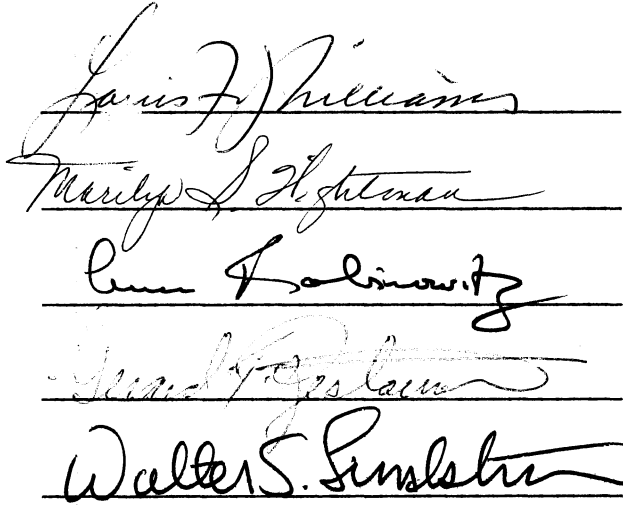 Louis F. Williams
Marilyn S. Hightman
Rabinowitz
Gerard P.
Walter S. Sundstrom